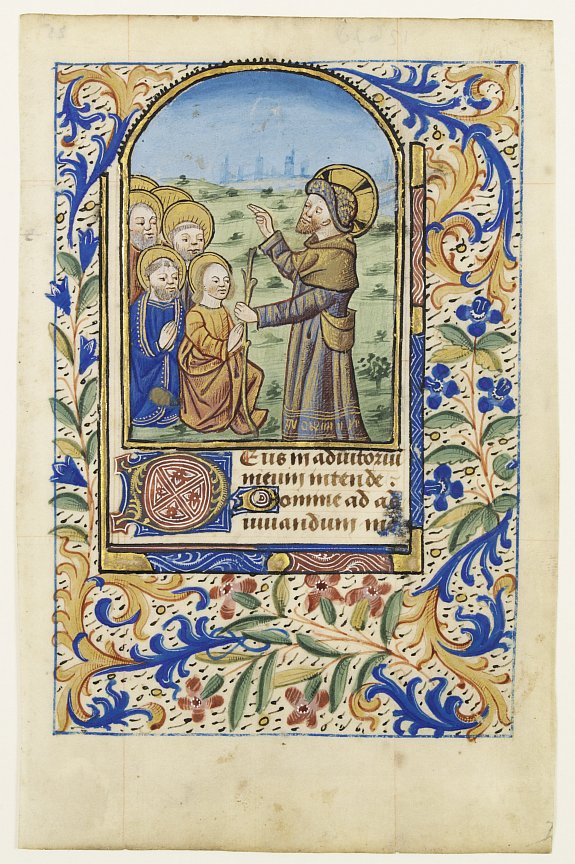 DEus in adiutoriu
meum intende .
Domine ad ad
iuuandum me